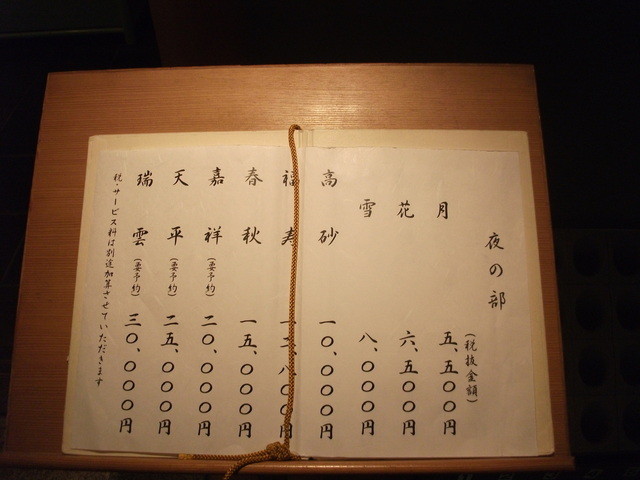 夜の部
(税抜金額)
月 五、五〇〇円
花 六、五〇〇円
雪 八、〇〇〇円
高砂 一〇、〇〇〇円
福寿 一二、八〇〇円
春秋 一五、〇〇〇円
嘉祥(要予約) 二〇、〇〇〇円
天平(要予約) 二五、〇〇〇円
瑞雲(要予約) 三〇、〇〇〇円
税・サービス料は別途加算させていただきます